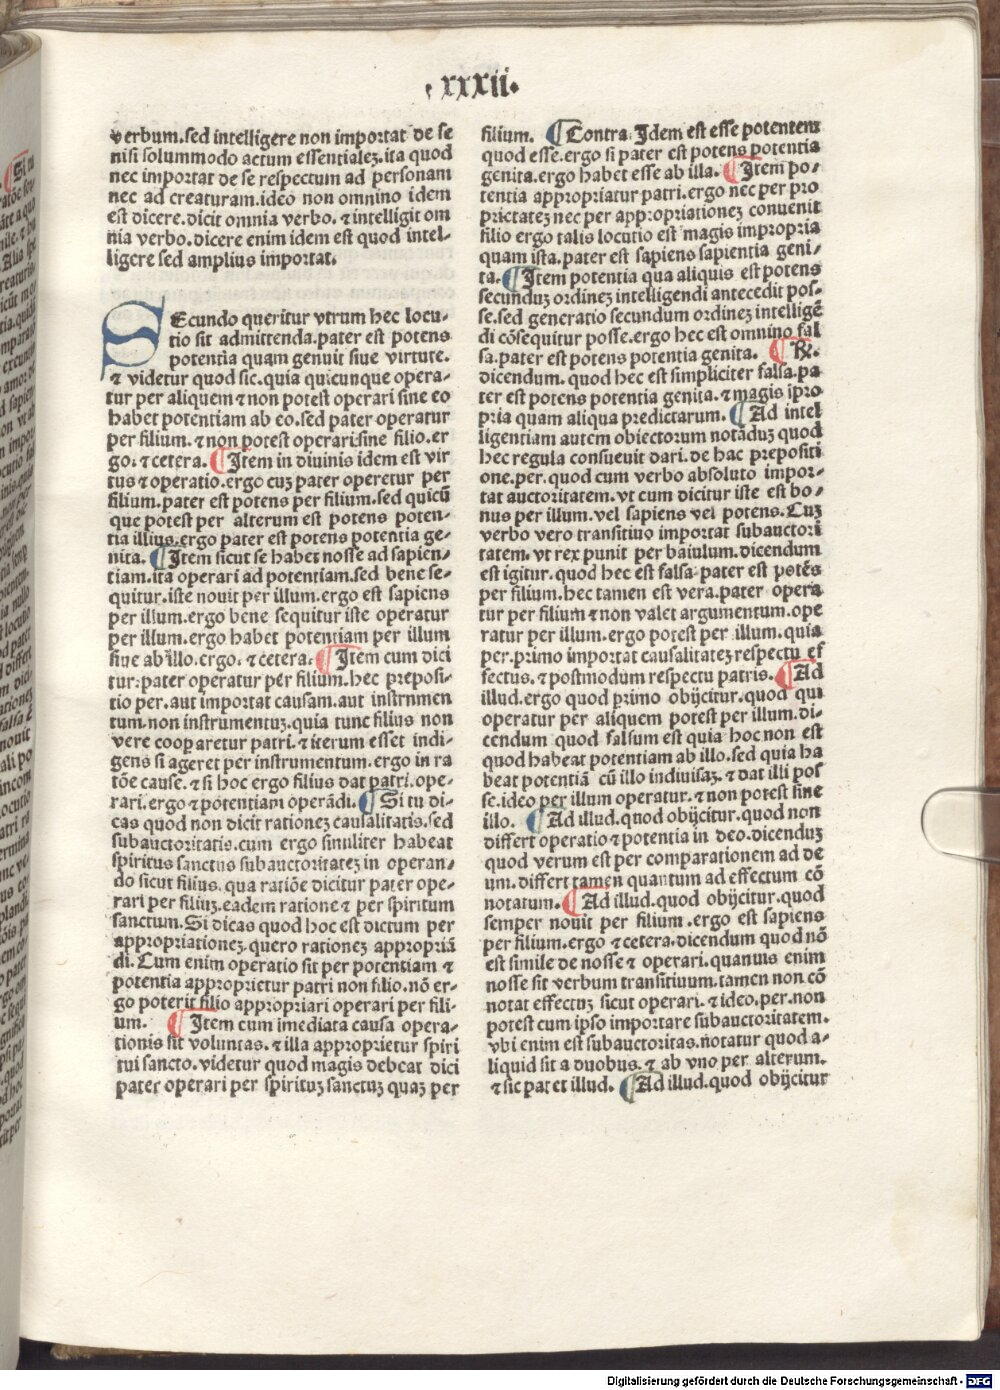 .xxxii.
verbum.sed intelligere non importat de se
nisi solummodo actum essentialeꝫ.ita quod
nec importat de se respectum ad personam
nec ad creaturam.ideo non omnino idem
est dicere.dicit omnia verbo.⁊ intelligit om
nia verbo.dicere enim idem est quod intel-
ligere sed amplius importat.
SEcundo queritur vtrum hec locu-
tio sit admittenda.pater est potens
potentia quam genuit siue virtute.
⁊ videtur quod sic.quia quicunque opera-
tur per aliquem ⁊ non potest operari sine eo
habet potentiam ab eo.sed pater operatur
per filium.⁊ non potest operari sine filio.er
go.⁊ cetera. ¶ Item in diuinis idem est vir
tus ⁊ operatio.ergo cuꝫ pater operetur per
filium.pater est potens per filium.sed quicū
que potest per alterum est potens poten-
tia illius.ergo pater est potens potentia ge-
nita. ¶ Item sicut se habet nosse ad sapien-
tiam.ita operari ad potentiam.sed bene se-
quitur.iste nouit per illum.ergo est sapiens
per illum.ergo bene sequitur iste operatur
per illum.ergo habet potentiam per illum
siue ab illo.ergo.⁊ cetera. ¶ Item cum dici
tur.pater operatur per filium.hec preposi-
tio per.aut importat causam.aut instrumen
tum.non instrumentuꝫ.quia tunc filius non
vere cooparetur patri.⁊ iterum esset indi-
gens si ageret per instrumentum.ergo in ra
tōe cause.⁊ si hoc ergo filius dat patri.ope-
rari.ergo ⁊ potentiam operādi. ¶ Si tu di-
cas quod non dicit rationeꝫ causalitatis.sed
subauctoritatis.cum ergo similiter habeat
spiritus sanctus subauctoritateꝫ in operan-
do sicut filius.qua ratiōe dicitur pater ope-
rari per filiuꝫ.eadem ratione ⁊ per spiritum
sanctum.Si dicas quod hoc est dictum per
appropriationeꝫ.quero rationeꝫ appropriā
di.Cum enim operatio sit per potentiam ⁊
potentia approprietur patri non filio.nō er-
go poterit filio appropriari operari per fili-
um. ¶ Item cum imediata causa opera-
tionis sit voluntas.⁊ illa approprietur spiri
tui sancto.videtur quod magis debeat dici
pater operari per spirituꝫ sanctuꝫ quaꝫ per
filium. ¶ Contra.Idem est esse potentem
quod esse.ergo si pater est potens potentia
genita.ergo habet esse ab illa. ¶ Item po-
tentia appropriatur patri.ergo nec per pro
prictateꝫ nec per appropriationeꝫ conuenit
filio ergo talis locutio est magis impropria
quam ista.pater est sapiens sapientia geni-
ta. ¶ Item potentia qua aliquis est potens
secunduꝫ ordineꝫ intelligendi antecedit pos-
se.sed generatio secundum ordineꝫ intelligē
di cōsequitur posse.ergo hec est omnino fal
sa.pater est potens potentia genita. ¶ R̷.
dicendum.quod hec est simpliciter falsa.pa
ter est potens potentia genita.⁊ magis īpro
pria quam aliqua predictarum. ¶ Ad intel
ligentiam autem obiectorum notāduꝫ quod
hec regula consueuit dari.de hac prepositi
one.per.quod cum verbo absoluto impor-
tat auctoritatem.vt cum dicitur iste est bo-
nus per illum.vel sapiens vel potens.Cuꝫ
verbo vero transitiuo importat subauctori
tatem.vt rex punit per baiulum.dicendum
est igitur.quod hec est falsa pater est potēs
per filium.hec tamen est vera.pater opera
tur per filium ⁊ non valet argumentum.ope
ratur per illum.ergo potest per illum.quia
per.primo importat causalitateꝫ respectu ef
fectus.⁊ postmodum respectu patris. ¶ Ad
illud.ergo quod primo obijcitur.quod qui
operatur per aliquem potest per illum.di-
cendum quod falsum est quia hoc non est
quod habeat potentiam ab illo.sed quia ha
beat potentiā cū illo indiuisaꝫ.⁊ dat illi pos
se.ideo per illum operatur.⁊ non potest sine
illo. ¶ Ad illud.quod obijcitur.quod non
differt operatio ⁊ potentia in deo.dicenduꝫ
quod verum est per comparationem ad de
um.differt tamen quantum ad effectum cō
notatum. ¶ Ad illud.quod obijcitur.quod
semper nouit per filium.ergo est sapiens
per filium.ergo ⁊ cetera.dicendum quod nō
est simile de nosse ⁊ operari.quanuis enim
nosse sit verbum transitiuum.tamen non cō
notat effectuꝫ sicut operari.⁊ ideo.per.non
potest cum ipso importare subauctoritatem.
vbi enim est subauctoritas.notatur quod a-
liquid sit a duobus.⁊ ab vno per alterum.
⁊ sic patet illud. ¶ Ad illud.quod obijcitur
Digitalisierung gefördert durch die Deutsche Forschungsgemeinschaft - DFG